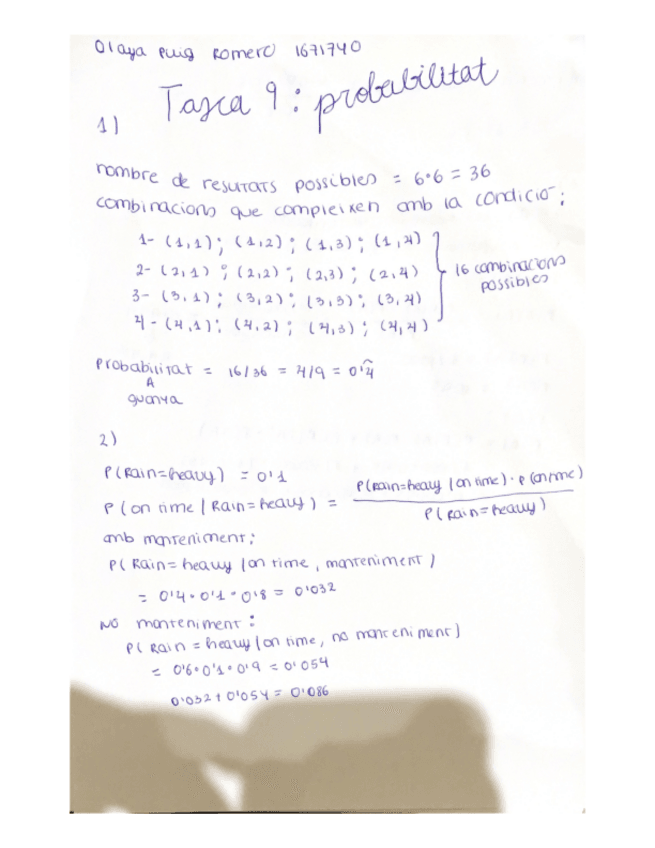 Olaya Puig Romero 1671740
Tasca 9: probabilitat
1)
nombre de resultats possibles = 6·6 = 36
combinacions que compleixen amb la condició;
1- (1,1); (1,2); (1,3); (1,4)
2- (2,1); (2,2); (2,3); (2,4)
3- (3,1); (3,2); (3,3); (3,4)
4- (4,1); (4,2); (4,3); (4,4)
16 combinacions
possibles
probabilitat = 16/36 = 4/9 = 0'4̂
A
guanya
2)
P(Rain=heavy) = 0'1
P(on time | Rain=heavy) = P(Rain=heavy | on time) · P(on time)
P(Rain=heavy)
amb manteniment;
P(Rain=heavy | on time, manteniment)
= 0'4 · 0'1 · 0'8 = 0'032
NO manteniment:
P(Rain=heavy | on time, no manteniment)
= 0'6 · 0'1 · 0'9 = 0'054
0'032 + 0'054 = 0'086